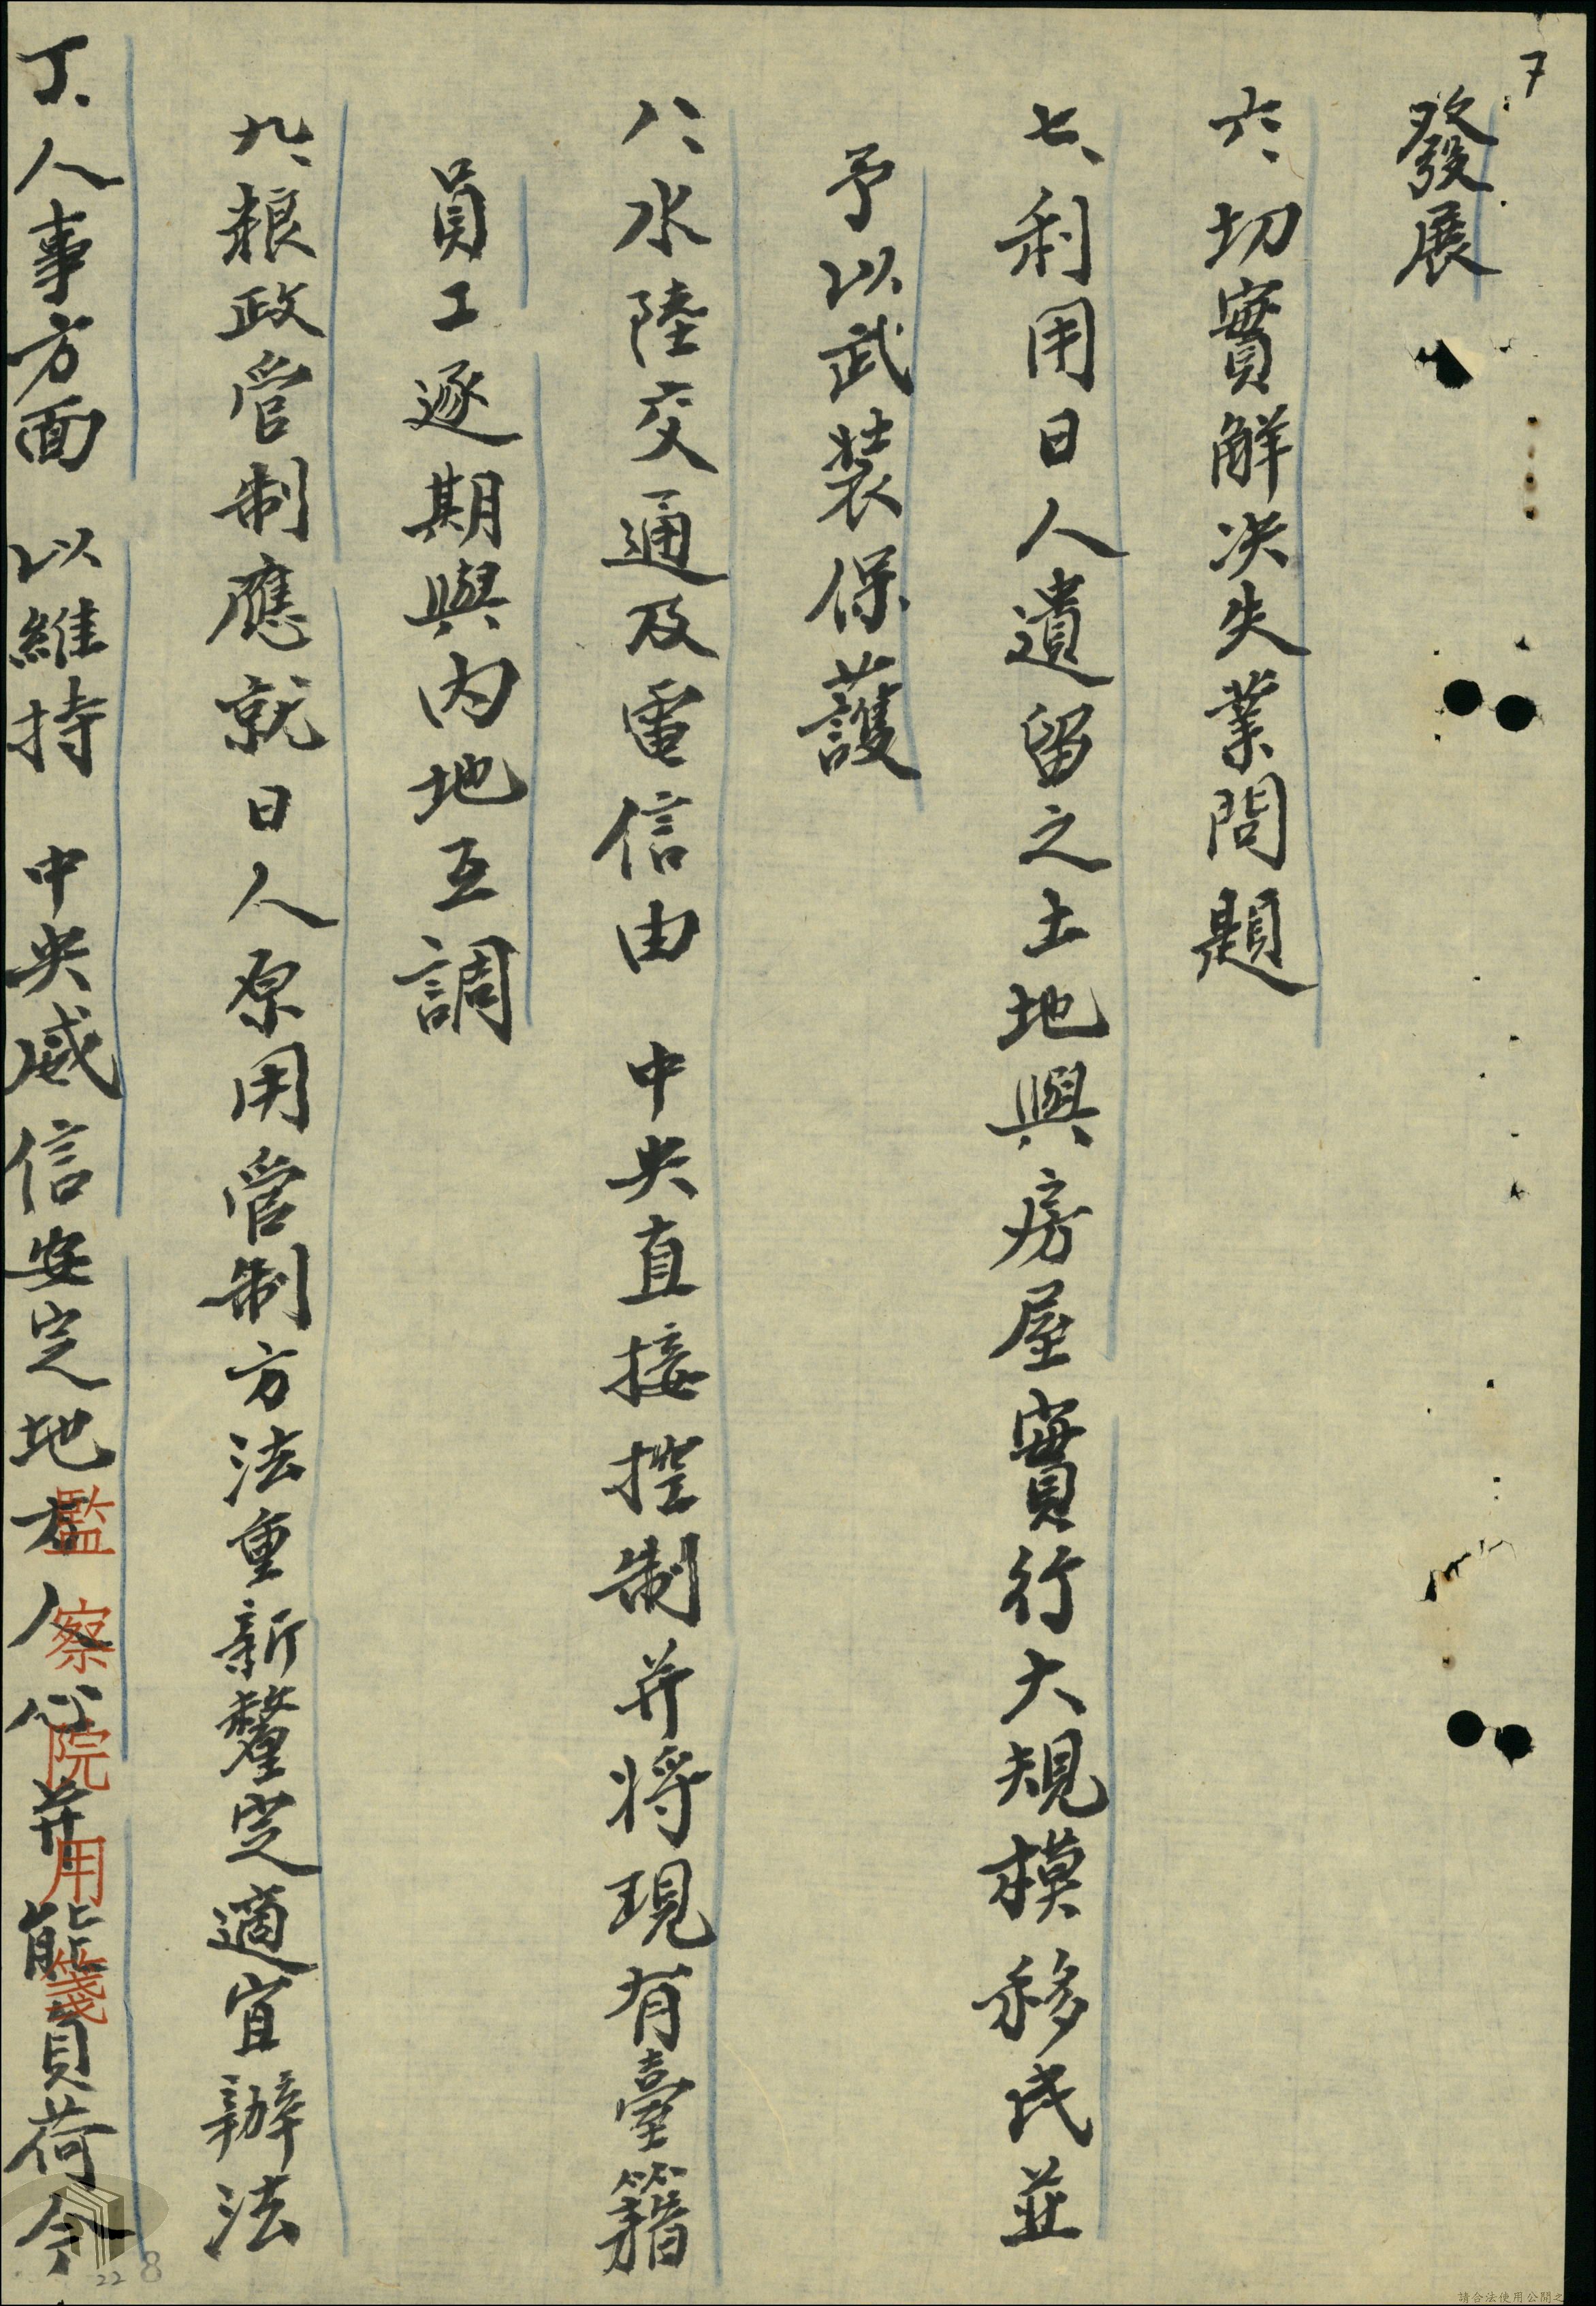 7
發展
六、切實解決失業問題
七、利用日人遺留之土地與房屋實行大規模移民並
予以武裝保護
八、水陸交通及電信由　中央直接控制并將現有臺籍
員工逐期與內地互調
九、粮政管制應就日人原用管制方法重新釐定適宜辦法
丁、人事方面　以維持　中央威信安定地方人心并能負荷今
監察院用箋
228
請合法使用公開之